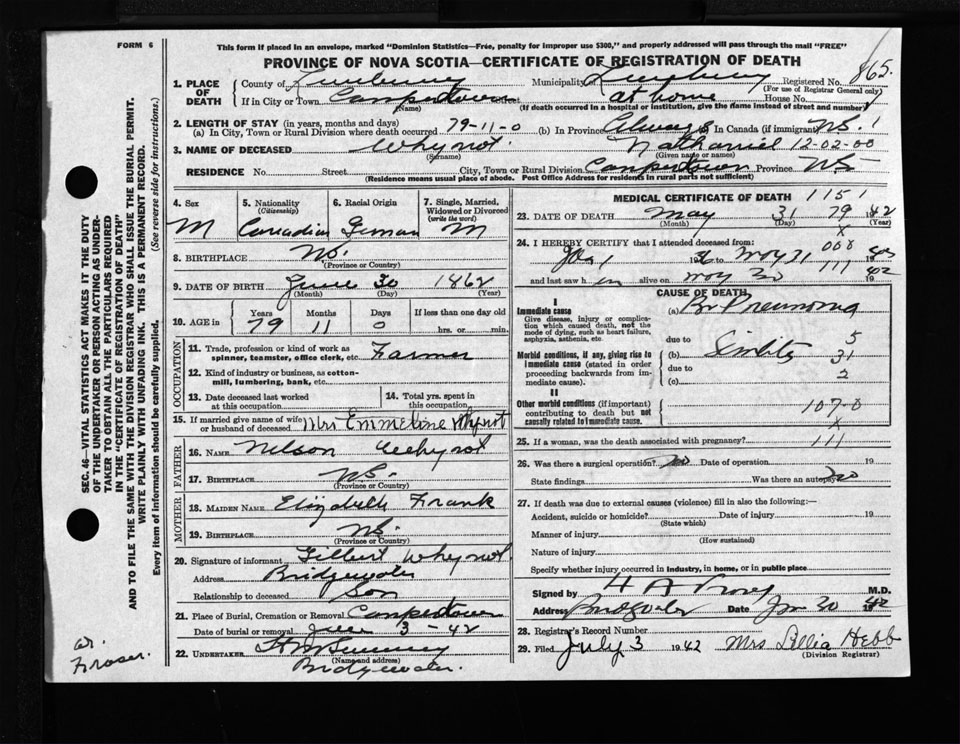 FORM 6
This form if placed in an envelope, marked "Dominion Statistics—Free, penalty for improper use $300," and properly addressed will pass through the mail "FREE"
PROVINCE OF NOVA SCOTIA—CERTIFICATE OF REGISTRATION OF DEATH
865.
1. PLACE OF DEATH
County of Lunenburg Municipality of Lunenburg Registered No.
(For use of Registrar General only)
If in City or Town (Name) at home House No.
(If death occurred in a hospital or institution, give the name instead of street and number)
2. LENGTH OF STAY (in years, months and days)
(a) In City, Town or Rural Division where death occurred 79-11-0 (b) In Province Always In Canada (if immigrant) NS. 1
3. NAME OF DECEASED Whynot. Nathaniel 12-02-00
(Surname) (Given name or names)
RESIDENCE No. Street City, Town or Rural Division Province NS
(Residence means usual place of abode. Post Office Address for residents in rural parts not sufficient)
4. Sex M
5. Nationality (Citizenship) Canadian
6. Racial Origin German
7. Single, Married, Widowed or Divorced (write the word) M
8. BIRTHPLACE NS.
(Province or Country)
9. DATE OF BIRTH June 30 1862
(Month) (Day) (Year)
10. AGE in Years Months Days If less than one day old
79 11 0 hrs. or min.
OCCUPATION
11. Trade, profession or kind of work as spinner, teamster, office clerk, etc. Farmer
12. Kind of industry or business, as cotton-mill, lumbering, bank, etc.
13. Date deceased last worked at this occupation
14. Total yrs. spent in this occupation
15. If married give name of wife or husband of deceased Mrs Emmeline Whynot
FATHER
16. NAME Nelson Whynot
17. BIRTHPLACE NS.
(Province or Country)
MOTHER
18. MAIDEN NAME Elizabeth Frank
19. BIRTHPLACE NS.
(Province or Country)
20. Signature of informant Gilbert Whynot
Address Bridgewater
Relationship to deceased Son
21. Place of Burial, Cremation or Removal
Date of burial or removal 3-42
22. UNDERTAKER
(Name and address)
Bridgewater.
MEDICAL CERTIFICATE OF DEATH 1151
23. DATE OF DEATH May 31 79 1942
(Month) (Day) (Year)
x
24. I HEREBY CERTIFY that I attended deceased from: 008
May 31 111 42
and last saw h im alive on May 30 19 42
CAUSE OF DEATH
I
Immediate cause
Give disease, injury or complication which caused death, not the mode of dying, such as heart failure, asphyxia, asthenia, etc.
(a) Br Pneumonia
due to 5
Morbid conditions, if any, giving rise to immediate cause (stated in order proceeding backwards from immediate cause).
(b) Senility 31
due to
(c) 2
II
Other morbid conditions (if important) contributing to death but not causally related to immediate cause.
107-0
x
25. If a woman, was the death associated with pregnancy? 111
26. Was there a surgical operation? no Date of operation 19
State findings Was there an autopsy? no
27. If death was due to external causes (violence) fill in also the following:—
Accident, suicide or homicide? Date of injury 19
(State which)
Manner of injury
(How sustained)
Nature of injury
Specify whether injury occurred in industry, in home, or in public place
Signed by M.D.
Address Bridgewater Date 30 19 42
28. Registrar's Record Number
29. Filed July 3 1942 Mrs Lillia Hebb
(Division Registrar)
SEC. 46—VITAL STATISTICS ACT MAKES IT THE DUTY
OF THE UNDERTAKER OR PERSON ACTING AS UNDER-
TAKER TO OBTAIN ALL THE PARTICULARS REQUIRED
IN THE "CERTIFICATE OF REGISTRATION OF DEATH"
AND TO FILE THE SAME WITH THE DIVISION REGISTRAR WHO SHALL ISSUE THE BURIAL PERMIT.
WRITE PLAINLY WITH UNFADING INK. THIS IS A PERMANENT RECORD.
Every item of information should be carefully supplied. (See reverse side for instructions.)
W.
Fraser.